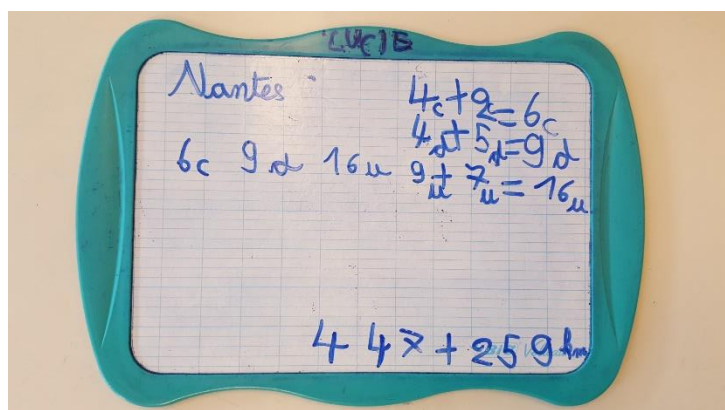 LUCIE
Nantes :
4c + 2c = 6c
4d + 5d = 9d
6c 9d 16u
9u + 7u = 16u
447 + 259 km